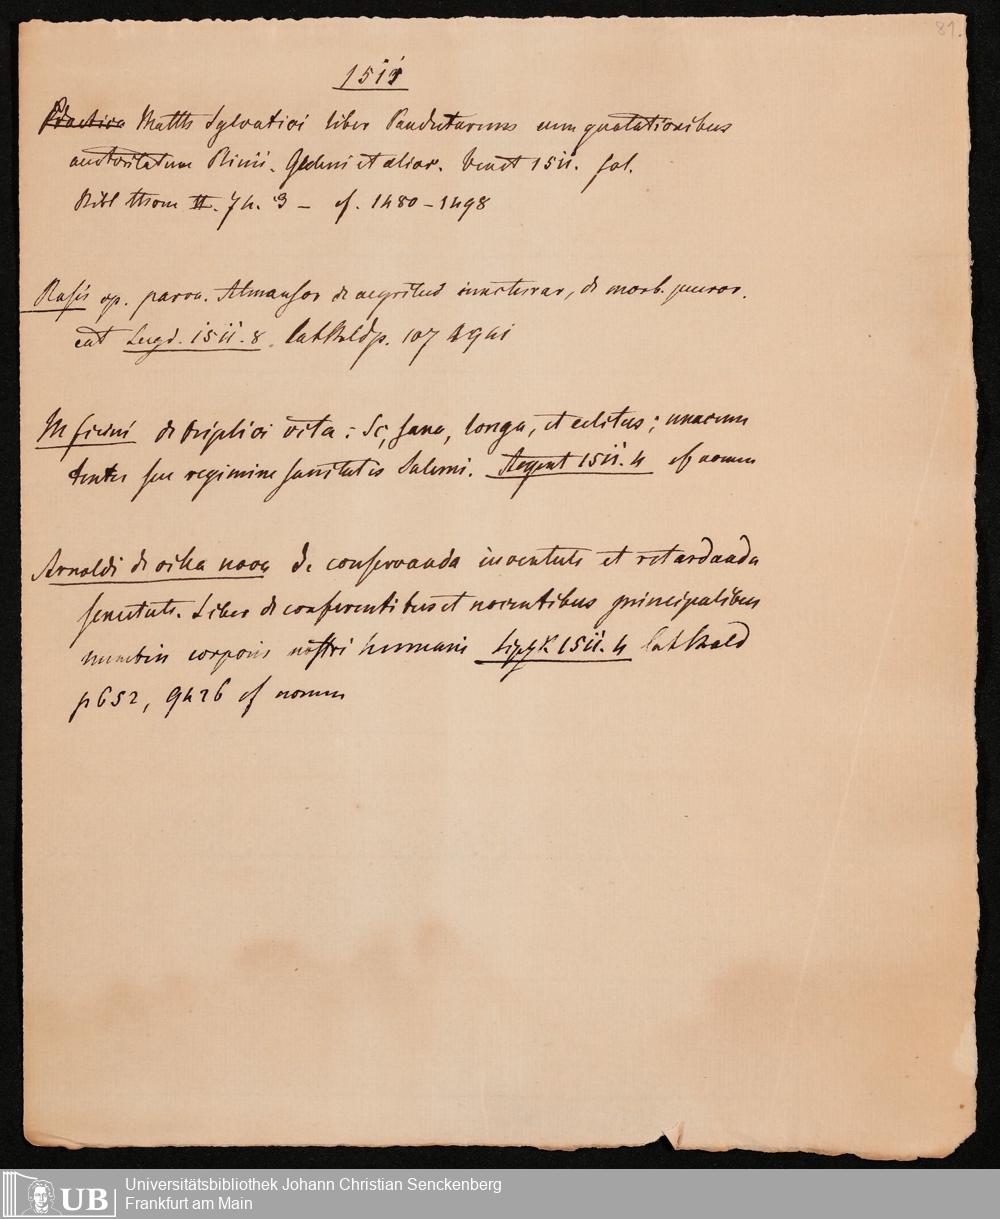 81.
1511
Practica Matth Sylvatici liber Pandectarum cum quotationibus
auctoritatum Plinii. Galeni et alior. Venet 1511. fol.
Bibl thom II. 74. 3 — cf. 1480 – 1498
Rasis op. parva. Almansor de aegritud iuncturar, de morb. pueror.
Lugd. 1511. 8. cat Bald p. 107
M ficini de triplici vita : Sc, sana, longa, et celitus; unacum
seu regimine sanitatis Salerni. Argent 1511. 4 cf
Arnoldi de villa nova De conservanda iuventute et retardanda
senectute. Liber de conferentibus et nocentibus principalibus
membris corporis nostri humani Lipzk 1511. 4 cat Bald
p 652, 9426 cf
Universitätsbibliothek Johann Christian Senckenberg
UB Frankfurt am Main